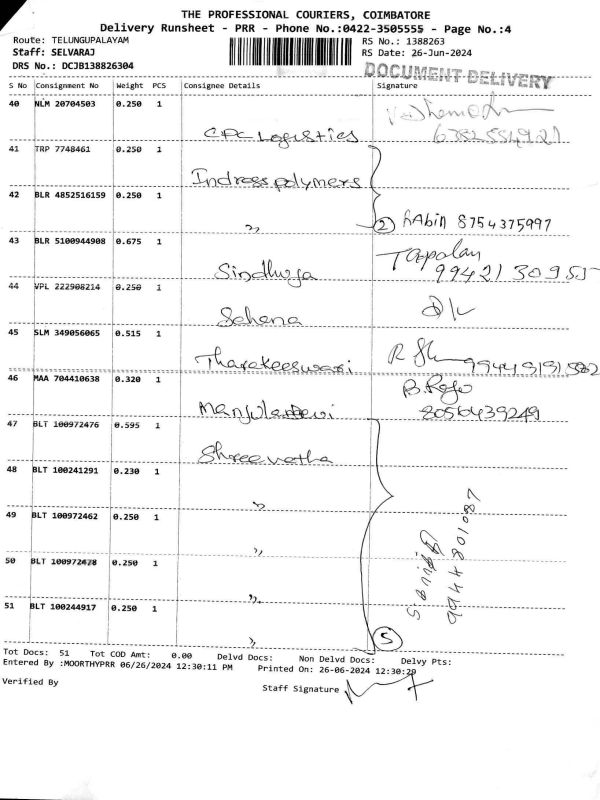 THE PROFESSIONAL COURIERS, COIMBATORE
Delivery Runsheet - PRR - Phone No.:0422-3505555 - Page No.:4
Route: TELUNGUPALAYAM RS No.: 1388263
Staff: SELVARAJ RS Date: 26-Jun-2024
DRS No.: DCJB138826304
DOCUMENT DELIVERY
S No Consignment No Weight PCS Consignee Details Signature
40 NLM 20704503 0.250 1
CPC Logistics
41 TRP 7748461 0.250 1
Indross polymers
42 BLR 4852516159 0.250 1
〃 2 8754375997
43 BLR 5100944908 0.675 1
Sindhuja 99421 30955
44 VPL 222908214 0.250 1
Sohena
45 SLM 349056065 0.515 1
Tharakeeswari
46 MAA 704410638 0.320 1
B. Raja
Manjuladevi 8056439249
47 BLT 100972476 0.595 1
Shreevatha
48 BLT 100241291 0.230 1
〃
49 BLT 100972462 0.250 1
〃
50 BLT 100972478 0.250 1
〃
51 BLT 100244917 0.250 1
〃 5
9944801087
Tot Docs: 51 Tot COD Amt: 0.00 Delvd Docs: Non Delvd Docs: Delvy Pts:
Entered By :MOORTHYPRR 06/26/2024 12:30:11 PM Printed On: 26-06-2024 12:30:29
Verified By Staff Signature